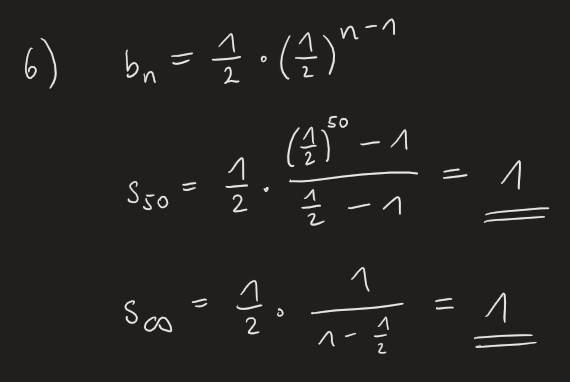 6) bₙ = 1/2 · (1/2)ⁿ⁻¹
s₅₀ = 1/2 · ((1/2)⁵⁰ − 1)/(1/2 − 1) = 1
s∞ = 1/2 · 1/(1 − 1/2) = 1